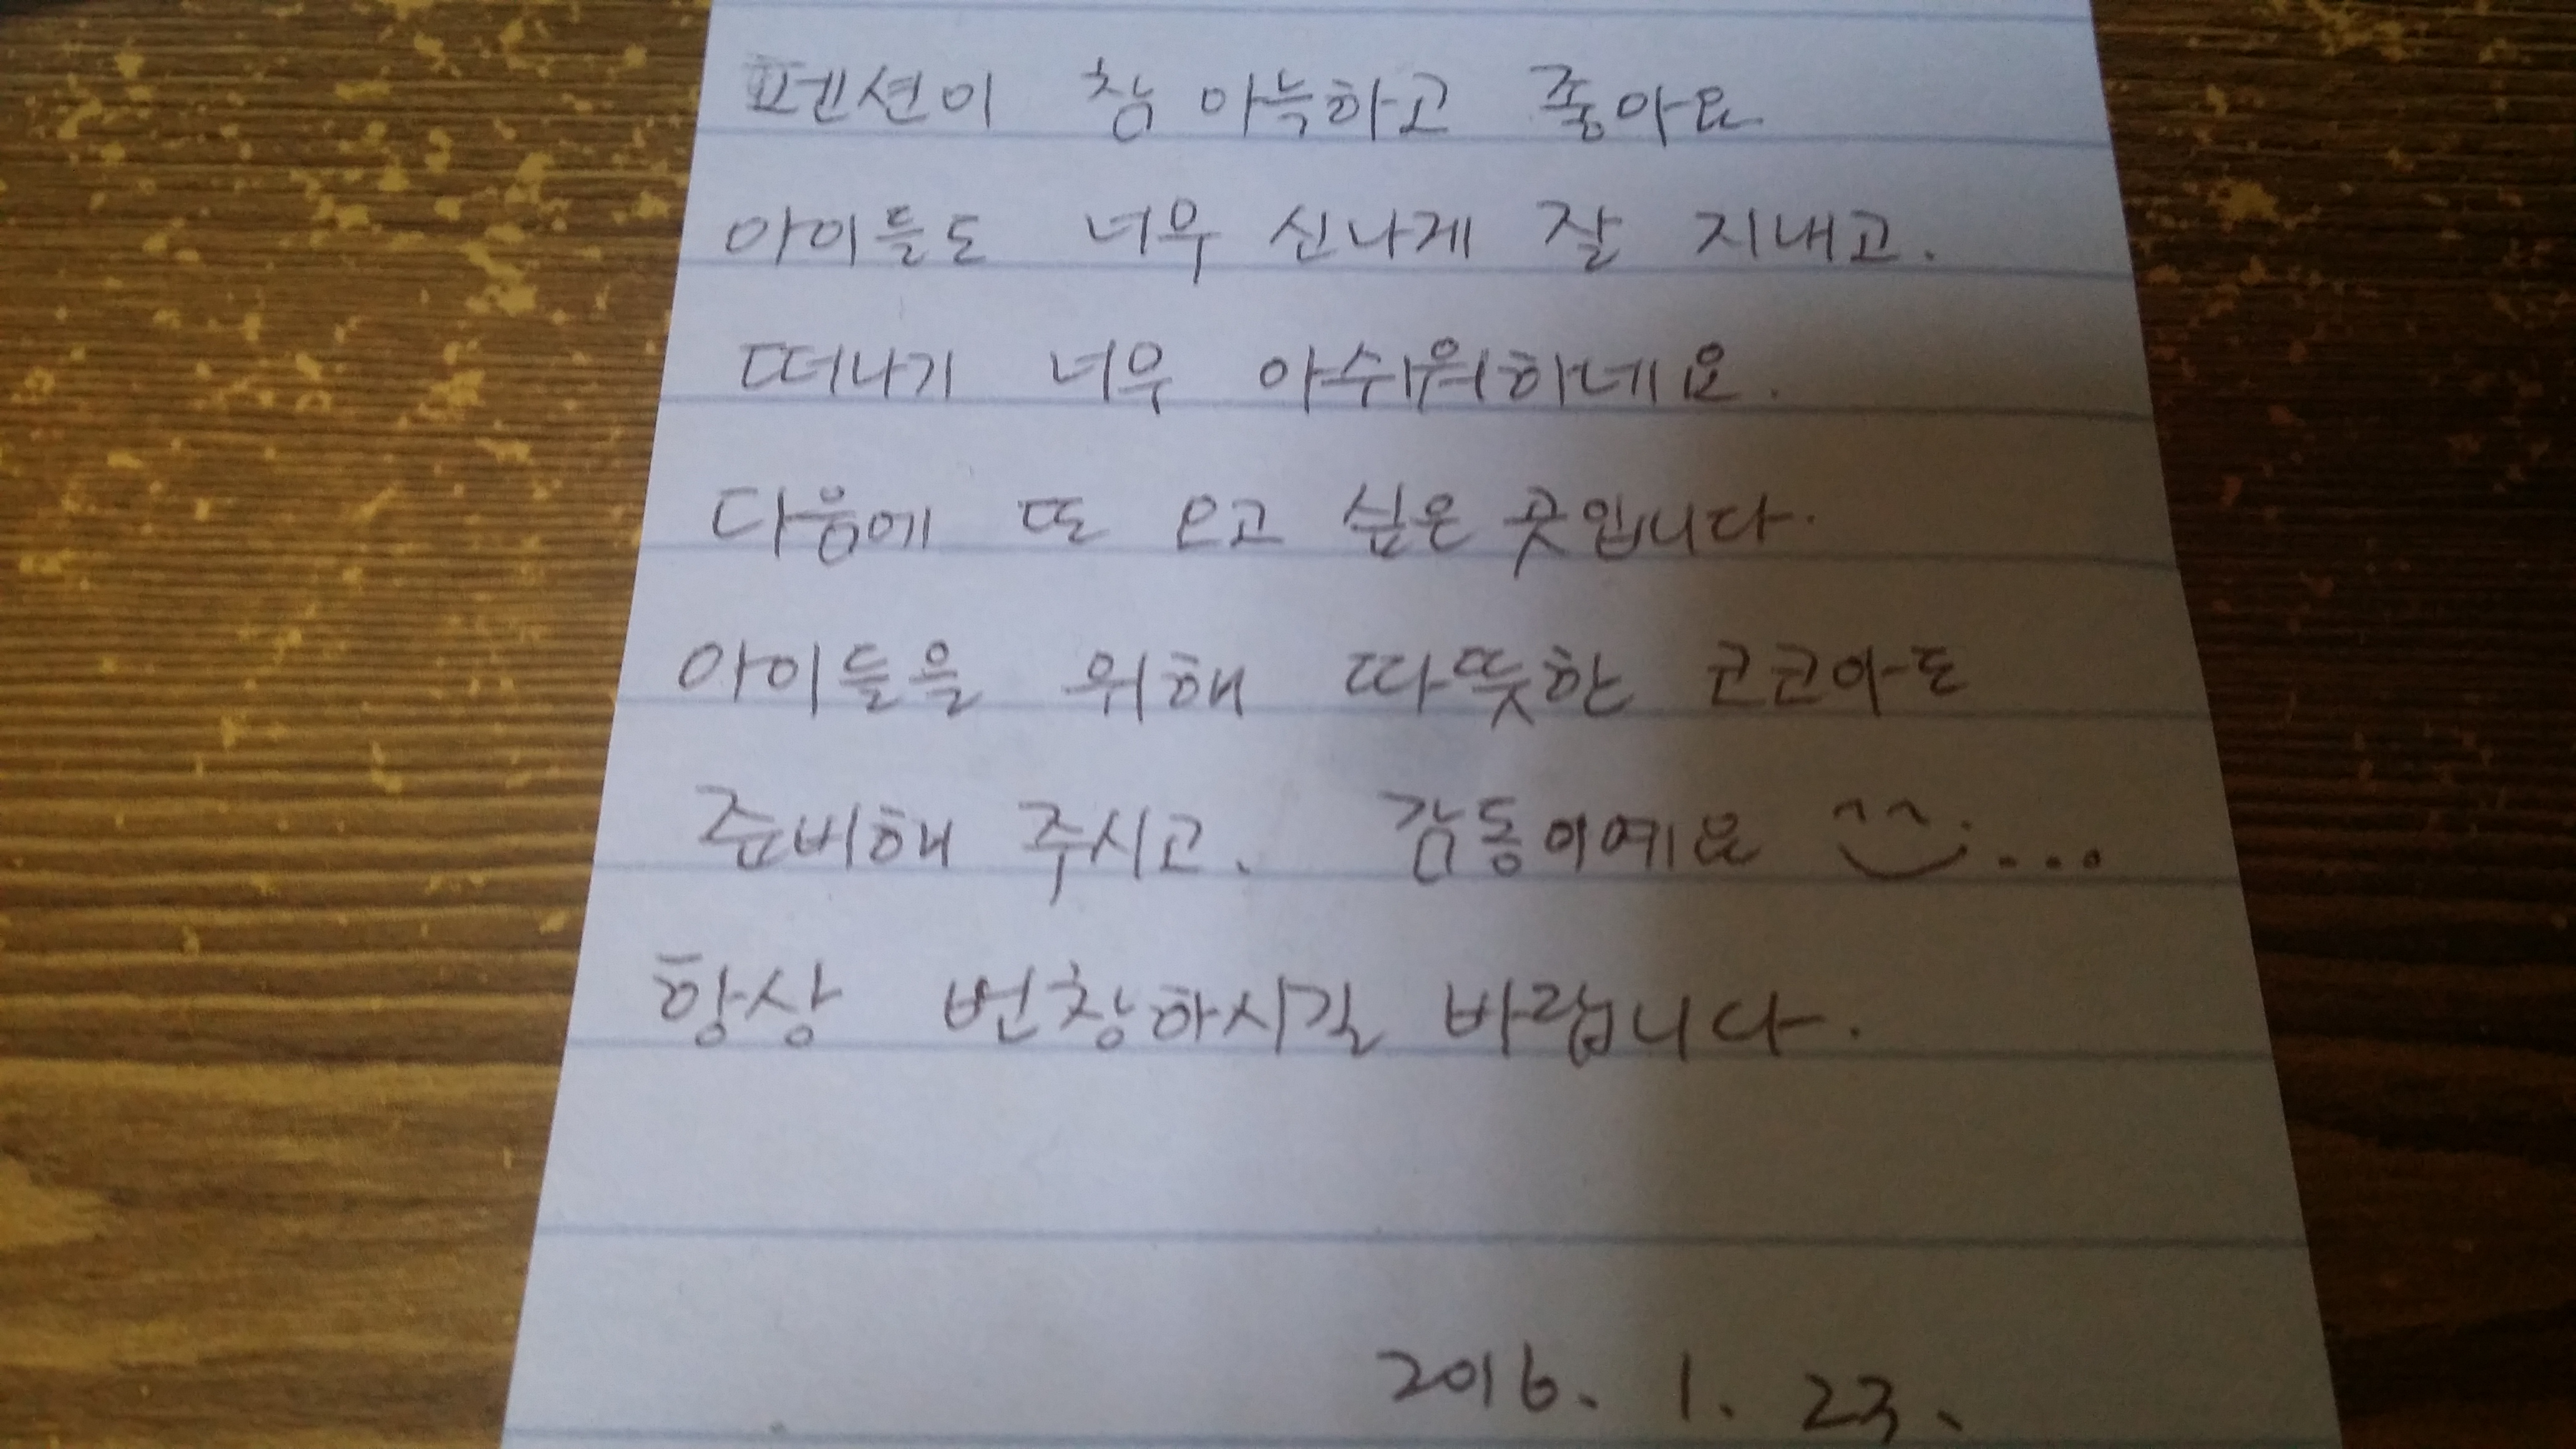 펜션이 참 아늑하고 좋아요
아이들도 너무 신나게 잘 지내고.
떠나기 너무 아쉬워하네요.
다음에 또 오고 싶은 곳입니다.
아이들을 위해 따뜻한 코코아도
준비해 주시고. 감동이예요 ^^...
항상 번창하시길 바랍니다.
2016. 1. 23.